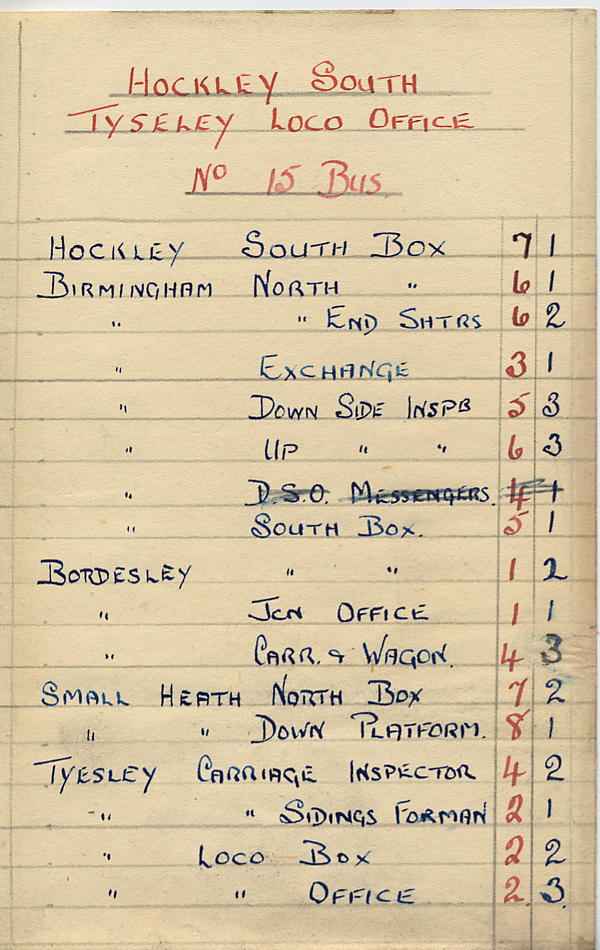 HOCKLEY SOUTH
TYSELEY LOCO OFFICE
No 15 BUS.
HOCKLEY SOUTH BOX 7 1
BIRMINGHAM NORTH " 6 1
" " END SHTRS 6 2
" EXCHANGE 3 1
" DOWN SIDE INSPB 5 3
" UP " " 6 3
" D.S.O. MESSENGERS. 4 1
" SOUTH BOX. 5 1
BORDESLEY " " 1 2
" JCN OFFICE 1 1
" CARR. & WAGON. 4 3
SMALL HEATH NORTH BOX 7 2
" " DOWN PLATFORM. 8 1
TYESLEY CARRIAGE INSPECTOR 4 2
" " SIDINGS FORMAN 2 1
" LOCO BOX 2 2
" " OFFICE 2. 3.